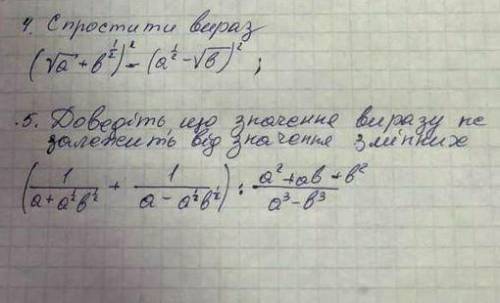 4. Спростити вираз
(√a + b^½)² - (a^½ - √b)² ;
.5. Доведіть, що значення виразу не
залежить від значення змінних
(1/(a + a^½b^½) + 1/(a - a^½b^½)) : (a² + ab + b²)/(a³ - b³)